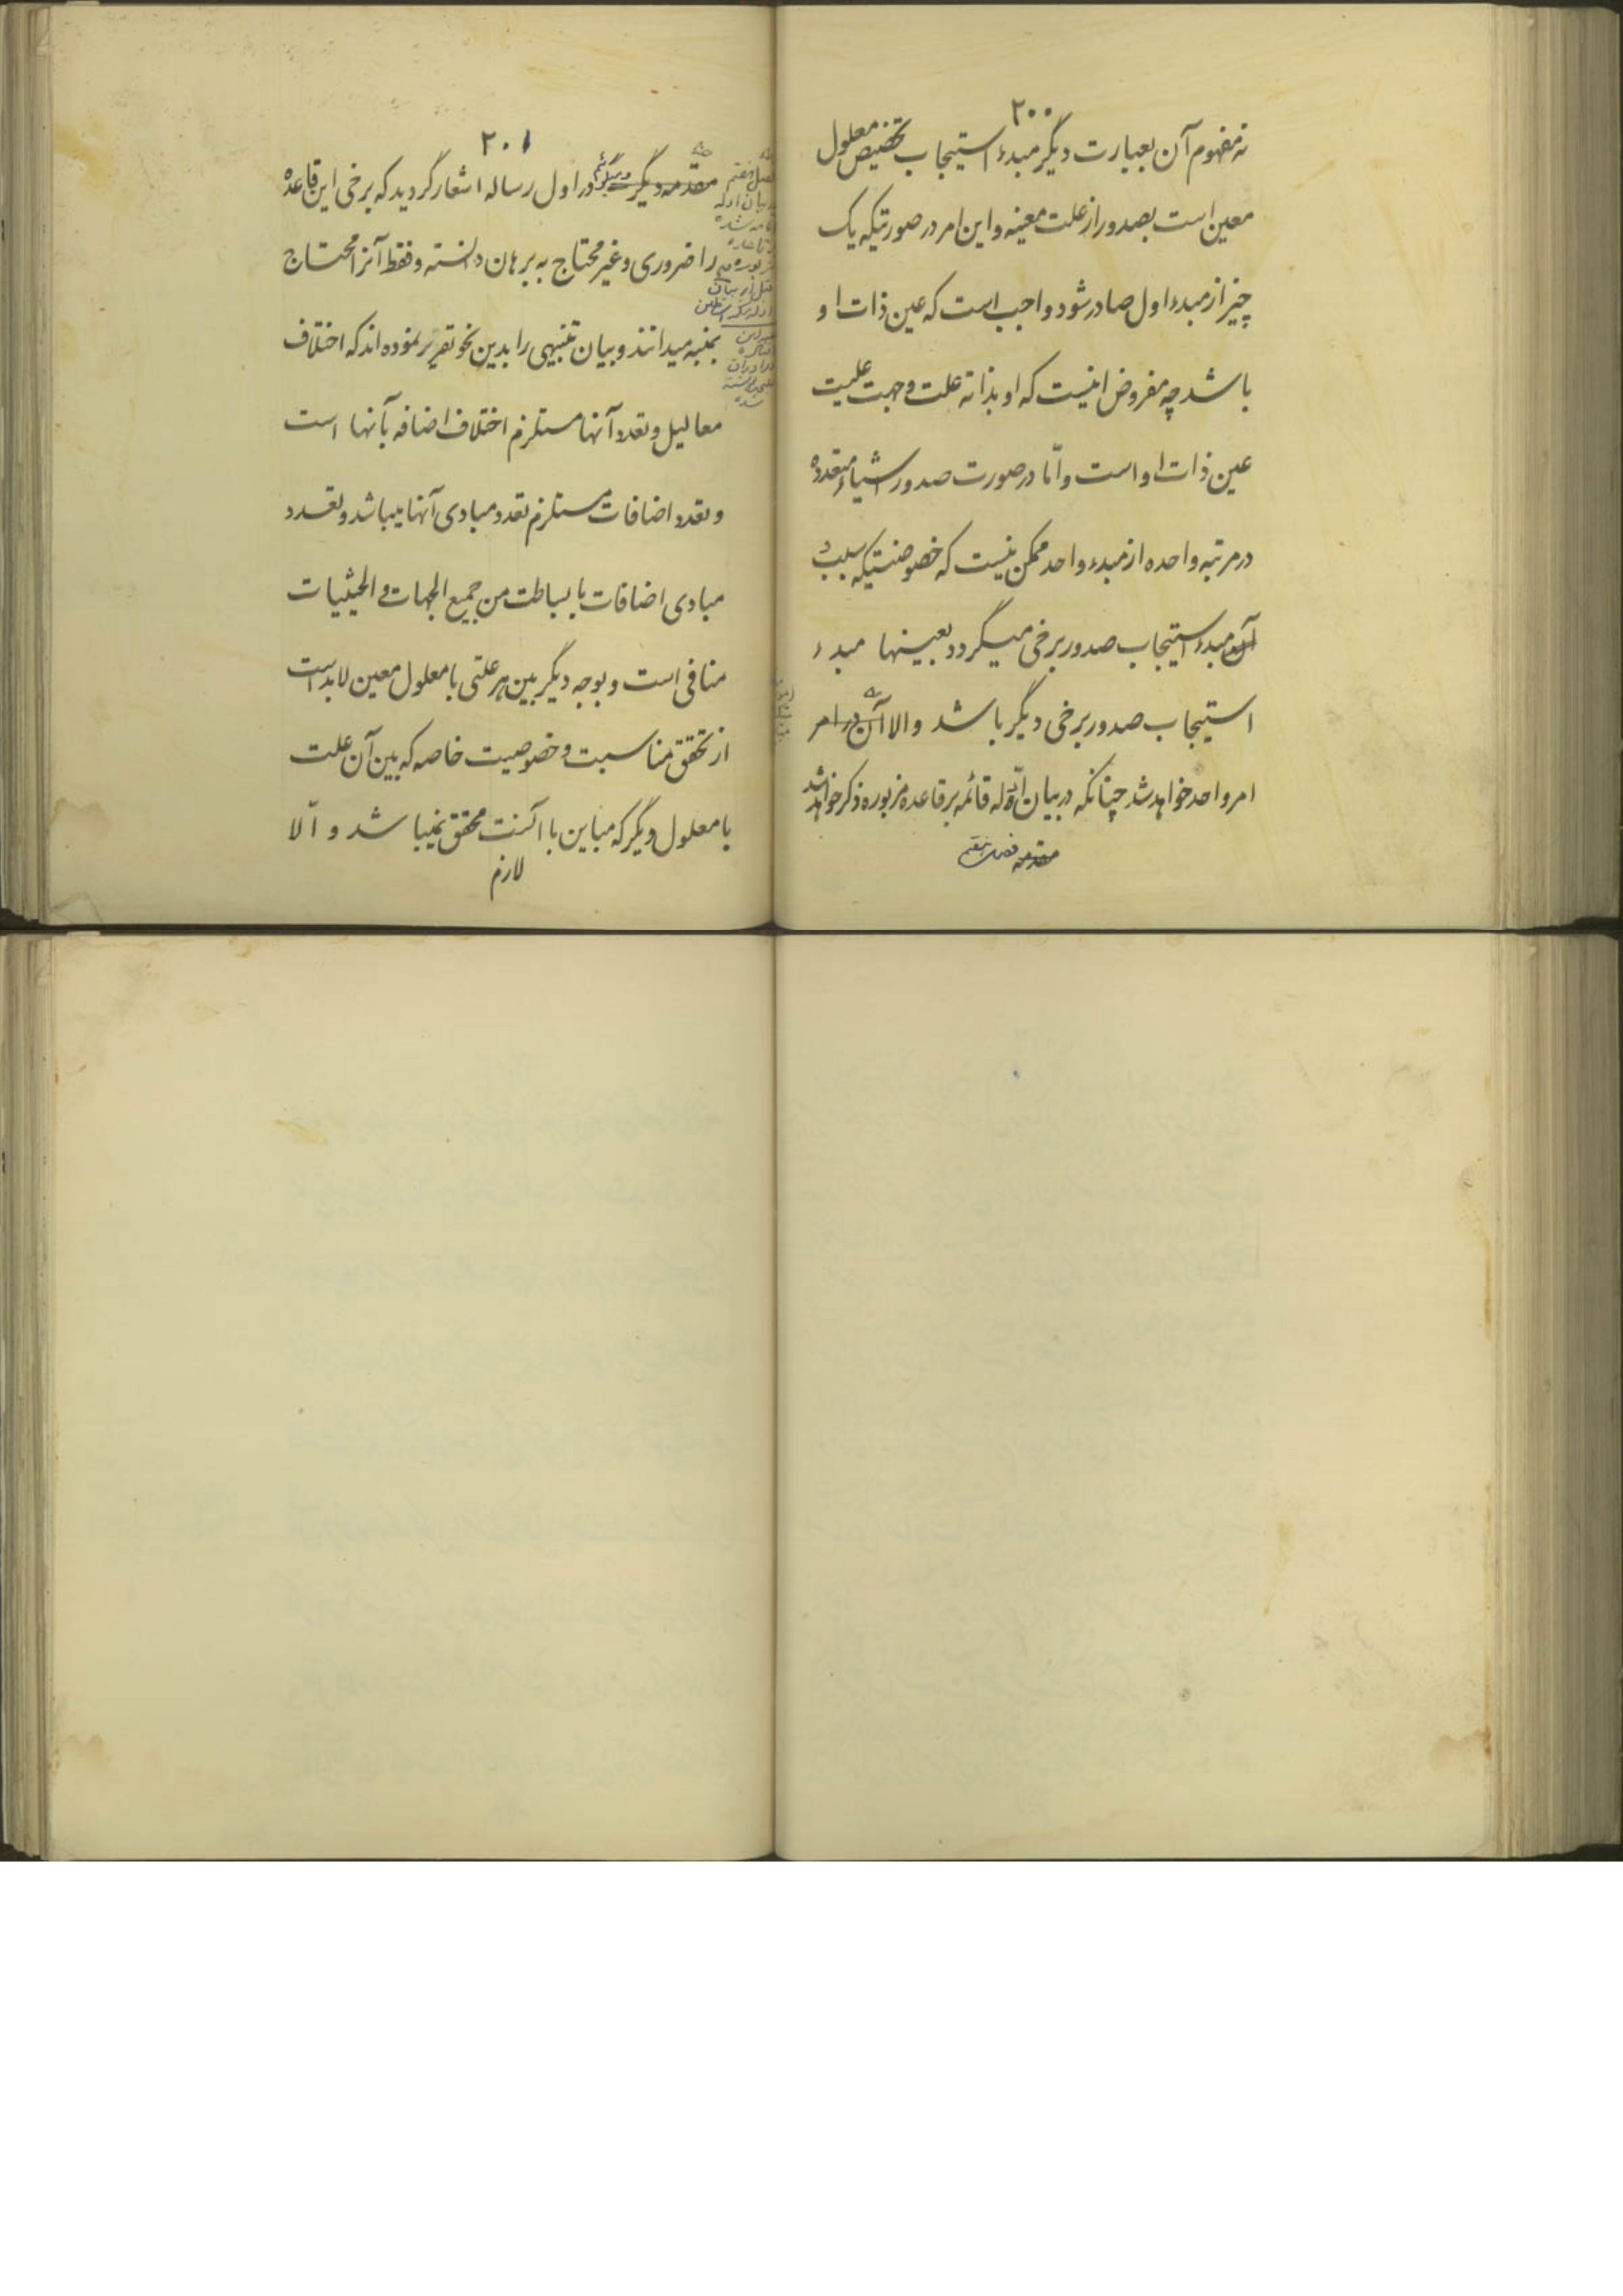 ۲۰۰
نه مفهوم آن بعبارت دیگر مبدء استیجاب تخصیص معلول
معین است بصدور از علت معینه و این امر در صورتیکه یک
چیز از مبدء اول صادر شود واجب است که عین ذات او
باشد چه مفروض اینست که او بذاته علت وجهت علیت
عین ذات او است و امّا در صورت صدور اشیاء متعدده
در مرتبه واحده از مبدء واحد ممکن نیست که خصوصیتیکه بسبب
آن مبدء استیجاب صدور برخی میگردد بعینها مبدء
استیجاب صدور برخی دیگر باشد والا آن در امر
امر واحد خواهد شد چنانکه در بیان ادّله قائمه بر قاعده مزبوره ذکر خواهد شد
مقدمه فصل هفتم
۲۰۱
مقدمه دیگر میگوئیم در اول رساله اشعار گردید که برخی این قاعده
را ضروری و غیر محتاج به برهان دانسته و فقط آنرا محتاج
بمنبه میدانند و بیان تنبیهی را بدین نحو تقریر نموده اند که اختلاف
معالیل و تعدد آنها مستلزم اختلاف اضافه بآنها است
و تعدد اضافات مستلزم تعدد مبادی آنها میباشد و تعدد
مبادی اضافات با بساطت من جمیع الجهات و الحیثیات
منافی است و بوجه دیگر بین هر علتی با معلول معین لابد است
از تحقق مناسبت و خصوصیت خاصه که بین آن علت
با معلول دیگر که مباین با آنست محقق نمیباشد و الّا
لازم
فصل هفتم
در بیان ادله